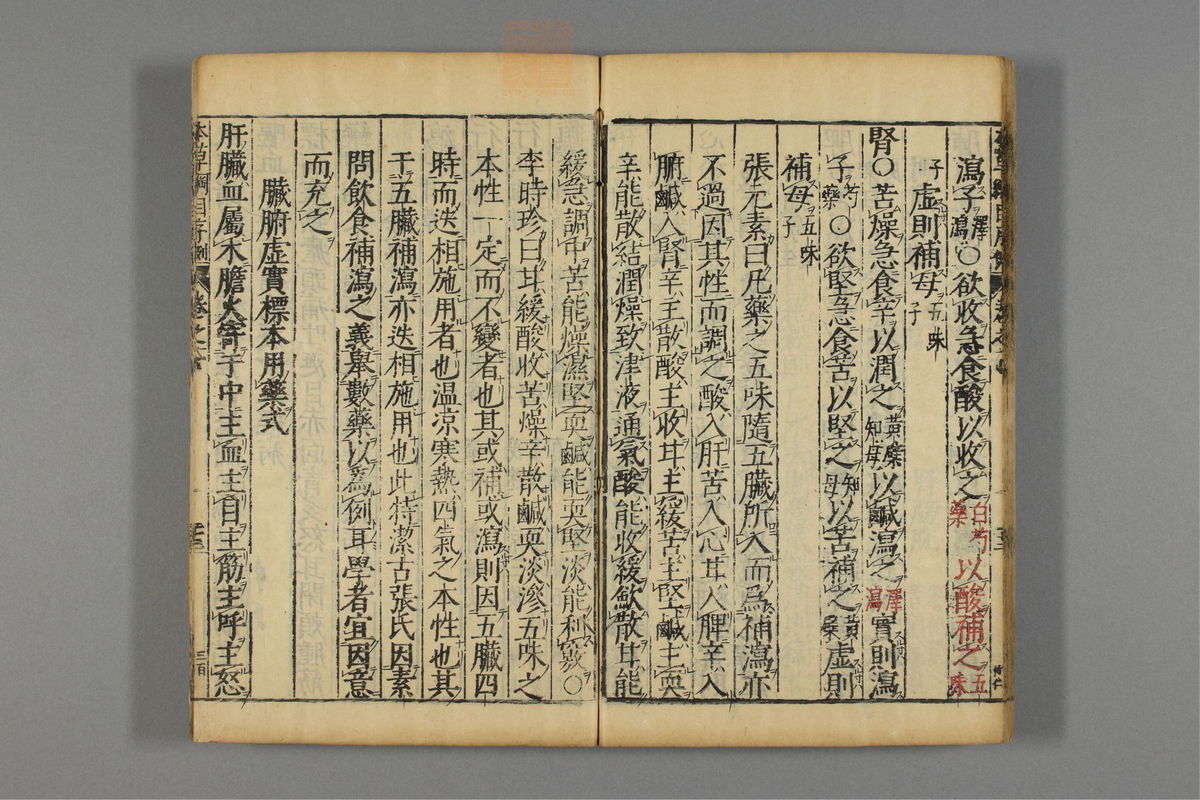 瀉子澤瀉○欲收急食酸以收之白芍藥以酸補之五味
子虛則補母五味子
腎○苦燥急食辛以潤之黃蘗知母以鹹瀉之澤瀉實則瀉
子芍藥○欲堅急食苦以堅之知母以苦補之黃蘗虛則
補母五味子
張元素曰凡藥之五味隨五臟所入而爲補瀉亦
不過因其性而調之酸入肝苦入心甘入脾辛入
腑鹹入腎辛主散酸主收甘主緩苦主堅鹹主耎
辛能散結潤燥致津液通氣酸能收緩斂散甘能
緩急調中苦能燥濕堅耎鹹能耎堅淡能利竅○
李時珍曰甘緩酸收苦燥辛散鹹耎淡滲五味之
本性一定而不變者也其或補或瀉則因五臟四
時而迭相施用者也温凉寒熱四氣之本性也其
于五臟補瀉亦迭相施用也此特潔古張氏因素
問飲食補瀉之義舉數藥以爲例耳學者宜因意
而充之
臟腑虛實標本用藥式
肝臟血屬木膽火寄于中主血主目主筋主呼主怒
本草綱目序例